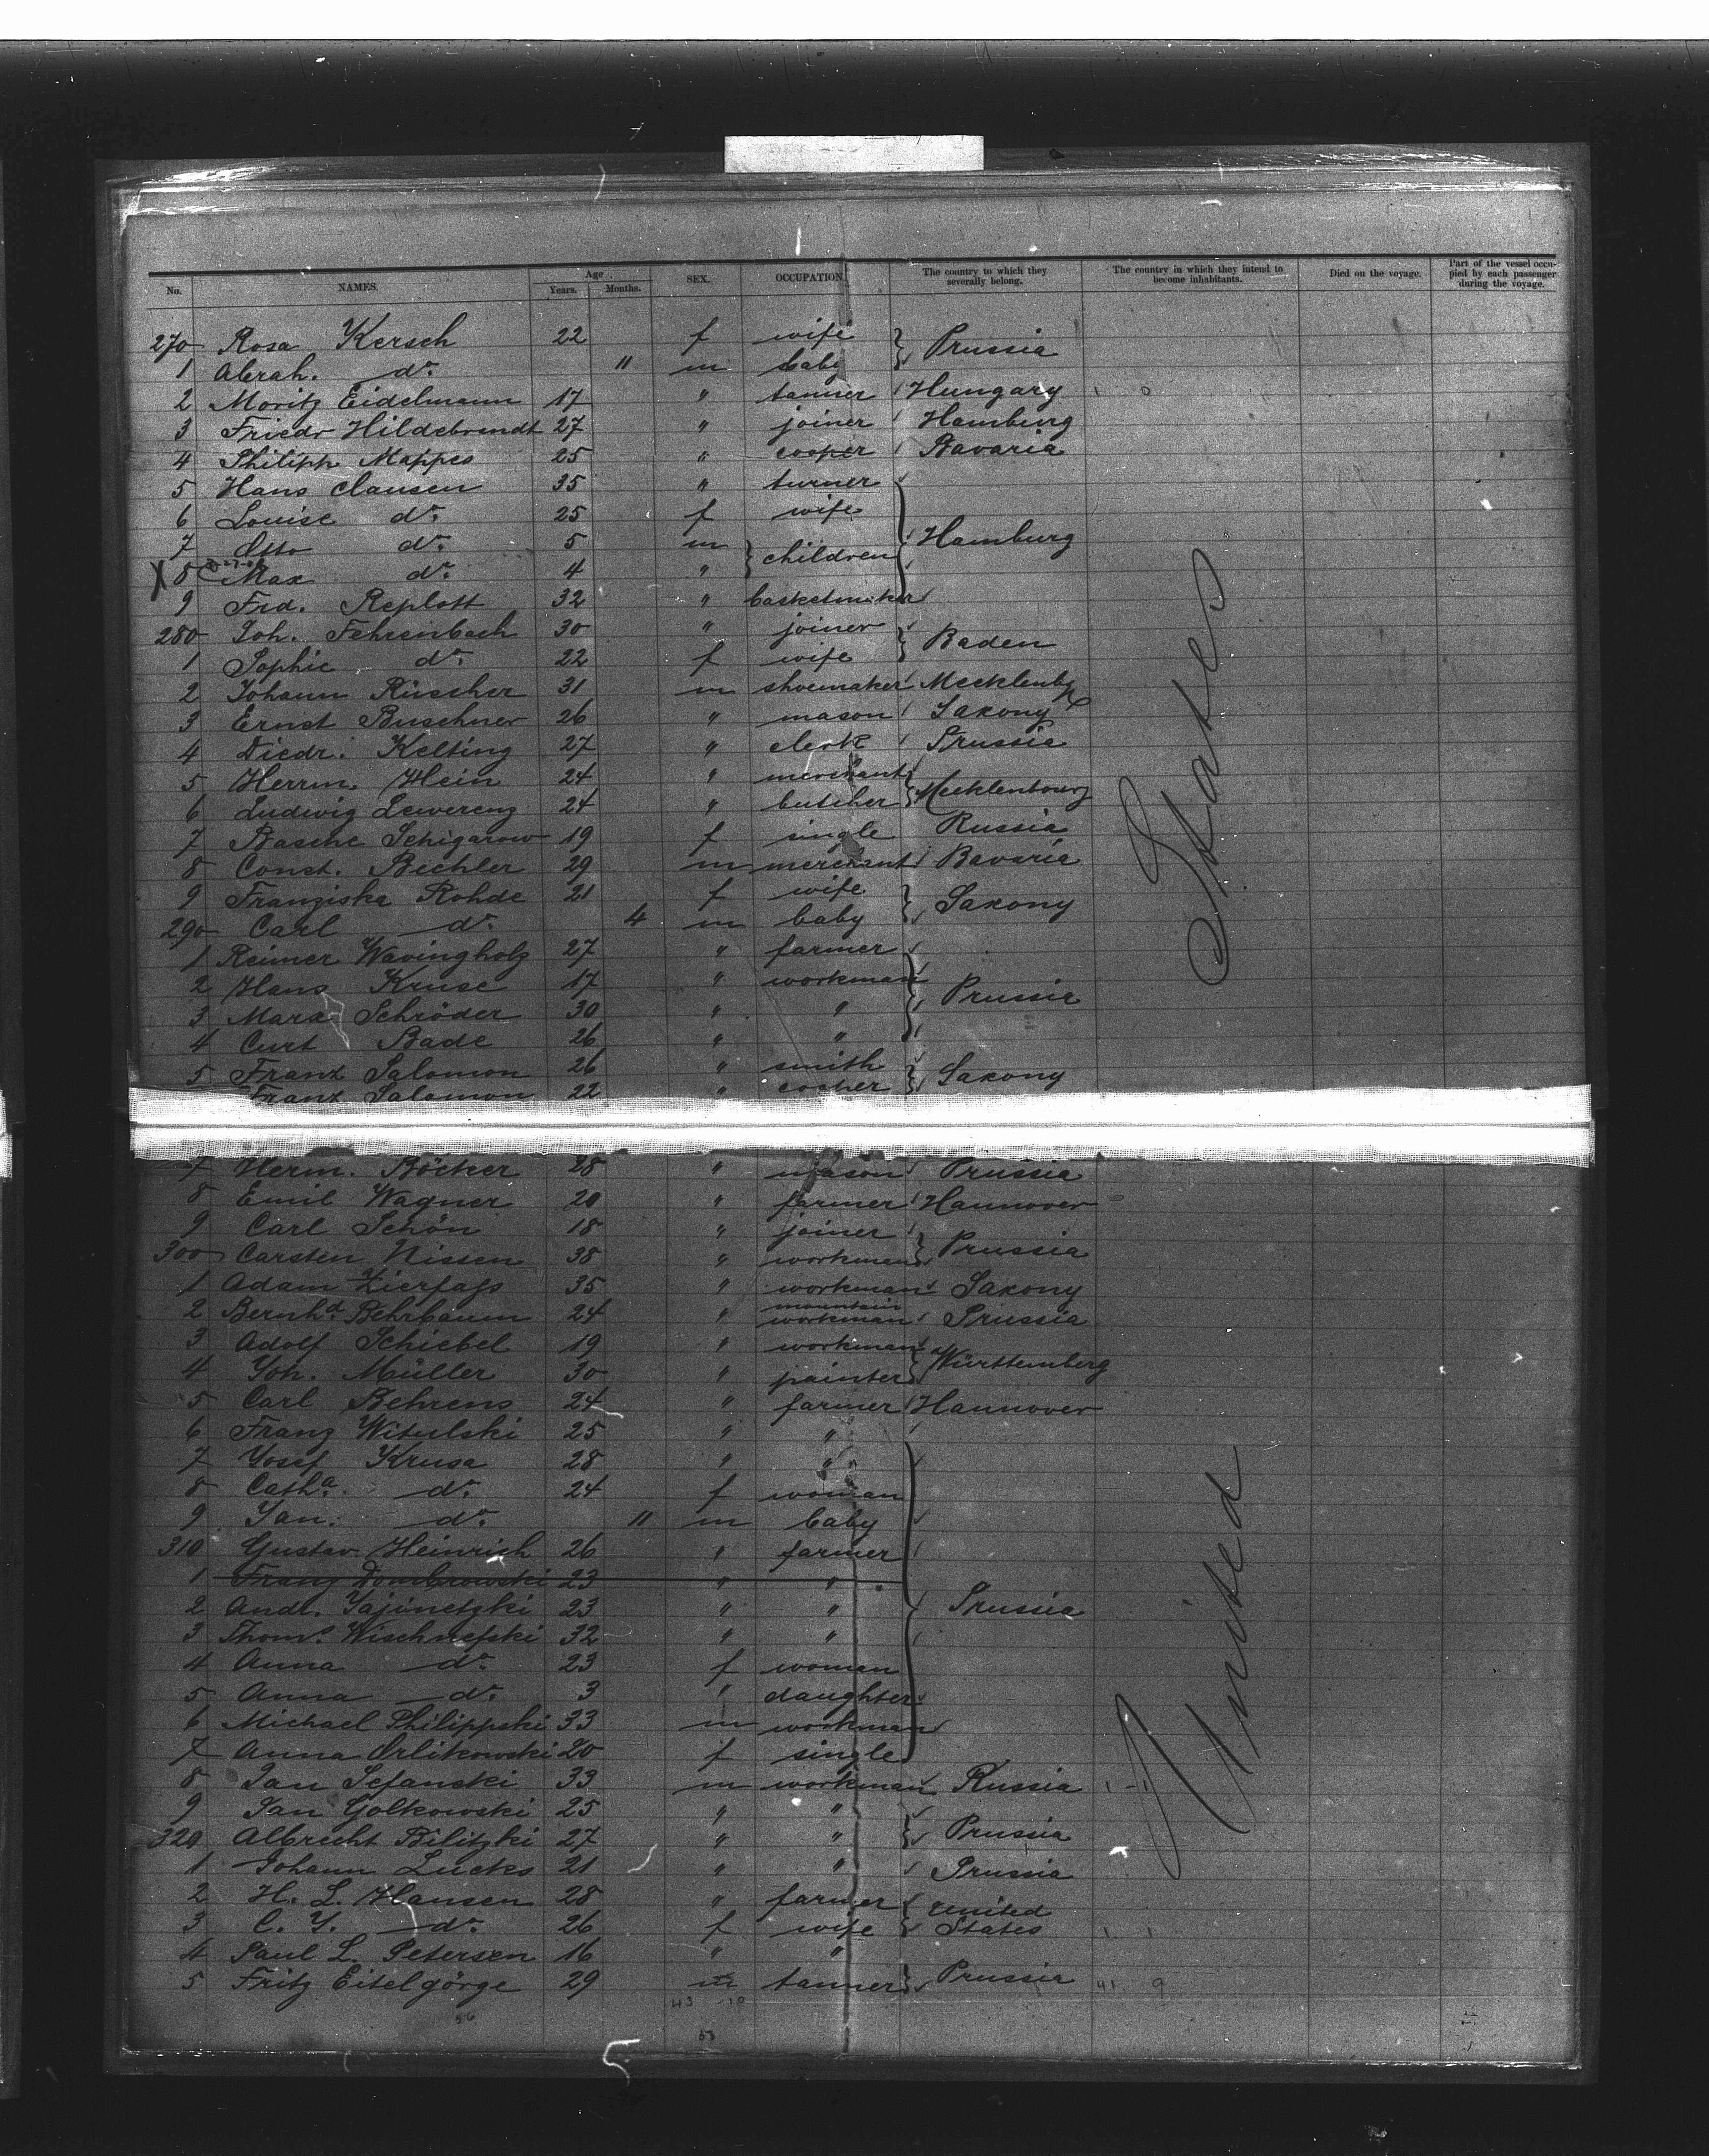 No. NAMES. Age. Years. Months. SEX. OCCUPATION. The country to which they severally belong. The country in which they intend to become inhabitants. Died on the voyage. Part of the vessel occupied by each passenger during the voyage.
270 Rosa Kersch 22 f wife } Prussia
1 Abrah. do. 11 m baby
2 Moritz Eidelmann 17 " tanner Hungary
3 Friedr Hildebrandt 27 " joiner Hamburg
4 Philipp Mappes 25 " cooper Bavaria
5 Hans Clausen 35 " turner
6 Louise do. 25 f wife
7 Otto do. 5 m } children } Hamburg
X 8 Max do. 4 "
9 Frd. Replott 32 " basketmaker
280 Joh. Fehrenbach 30 " joiner } Baden
1 Sophie do. 22 f wife
2 Johann Rüscher 31 m shoemaker Mecklenbg
3 Ernst Buschner 26 " mason Saxony
4 Diedr. Kelting 27 " clerk Prussia
5 Herrm. Hein 24 " merchant } Mecklenbourg
6 Ludwig Lewerenz 24 " butcher
7 Basche Schigarow 19 f single Russia
8 Const. Bechler 29 m merchant Bavaria
9 Franziska Rohde 21 f wife } Saxony
290 Carl do. 4 m baby
1 Reimer Wavingholz 27 " farmer
2 Hans Kruse 17 " workman } Prussia
3 Marx Schröder 30 " "
4 Curt Bade 26 " "
5 Franz Salomon 26 " smith } Saxony
Franz Salomon 22 " cooper
7 Herm. Böcker 28 " mason Prussia
8 Emil Wagner 20 " farmer Hannover
9 Carl Schön 18 " joiner } Prussia
300 Carsten Nissen 38 " workman
1 Adam Zierfass 35 " workman Saxony
2 Bernhd. Behrbaum 24 " mountain workman Prussia
3 Adolf Schiebel 19 " workman } Württemberg
4 Joh. Müller 30 " painter
5 Carl Behrens 24 " farmer Hannover
6 Franz Witulski 25 " "
7 Josef Krusa 28 " "
8 Catha. do. 24 f woman
9 Jan. do. 11 m baby
310 Gustav Heinrich 26 " farmer
1 Franz Dombrowski 23 " "
2 Andr. Jajinetzki 23 " " } Prussia
3 Thoms. Wischnefski 32 " "
4 Anna do. 23 f woman
5 Anna do. 3 " daughter
6 Michael Philippski 33 m workman
7 Anna Orlikowski 20 f single
8 Jan Sefanski 33 m workman Russia
9 Jan Golkowski 25 " "
320 Albrecht Bilitzki 27 " " } Prussia
1 Johann Lucks 21 " " Prussia
2 H. L. Hansen 28 " farmer } United
3 C. Y. do. 26 f wife States
4 Paul L. Petersen 16 " "
5 Fritz Eitelgörge 29 m tanner } Prussia 41. 9
43 10
56
53
United States